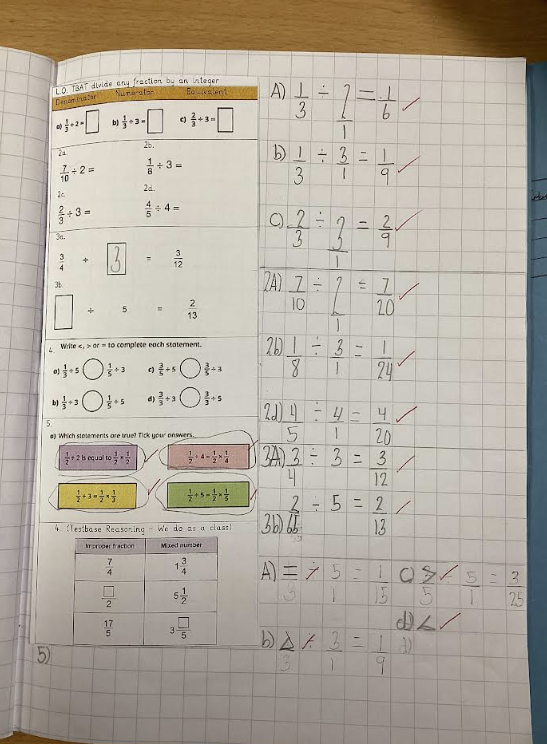 L.O. TBAT divide any fraction by an integer
Denominator Numerator Equivalent
a) 1/3 ÷ 2 = b) 1/3 ÷ 3 = c) 2/3 ÷ 3 =
2a. 2b.
7/10 ÷ 2 = 1/8 ÷ 3 =
2c. 2d.
2/3 ÷ 3 = 4/5 ÷ 4 =
3a.
3/4 ÷ 3 = 3/12
3b.
÷ 5 = 2/13
4. Write <, > or = to complete each statement.
a) 1/3 ÷ 5 1/5 ÷ 3 c) 3/5 ÷ 5 3/5 ÷ 3
b) 1/3 ÷ 3 1/5 ÷ 5 d) 3/3 ÷ 3 3/3 ÷ 5
5.
a) Which statements are true? Tick your answers.
1/2 ÷ 2 is equal to 1/2 × 1/2 1/2 ÷ 4 = 1/2 × 1/4
1/2 ÷ 3 = 1/2 × 1/3 1/2 ÷ 5 = 1/2 × 1/5
4. (Testbase Reasoning - We do as a class)
Improper fraction Mixed number
7/4 1 3/4
/2 5 1/2
17/5 3 /5
5)
A) 1/3 ÷ 2/1 = 1/6
b) 1/3 ÷ 3/1 = 1/9
C) 2/3 ÷ 3/1 = 2/9
2A) 7/10 ÷ 2/1 = 7/20
2b) 1/8 ÷ 3/1 = 1/24
2d) 4/5 ÷ 4/1 = 4/20
3A) 3/4 ÷ 3 = 3/12
3b) 2/ ÷ 5 = 2/13
A) = ÷ 5/1 = 1/15 C) > 5/1 = 3/25
d) <
b) ÷ 3/1 = 1/9